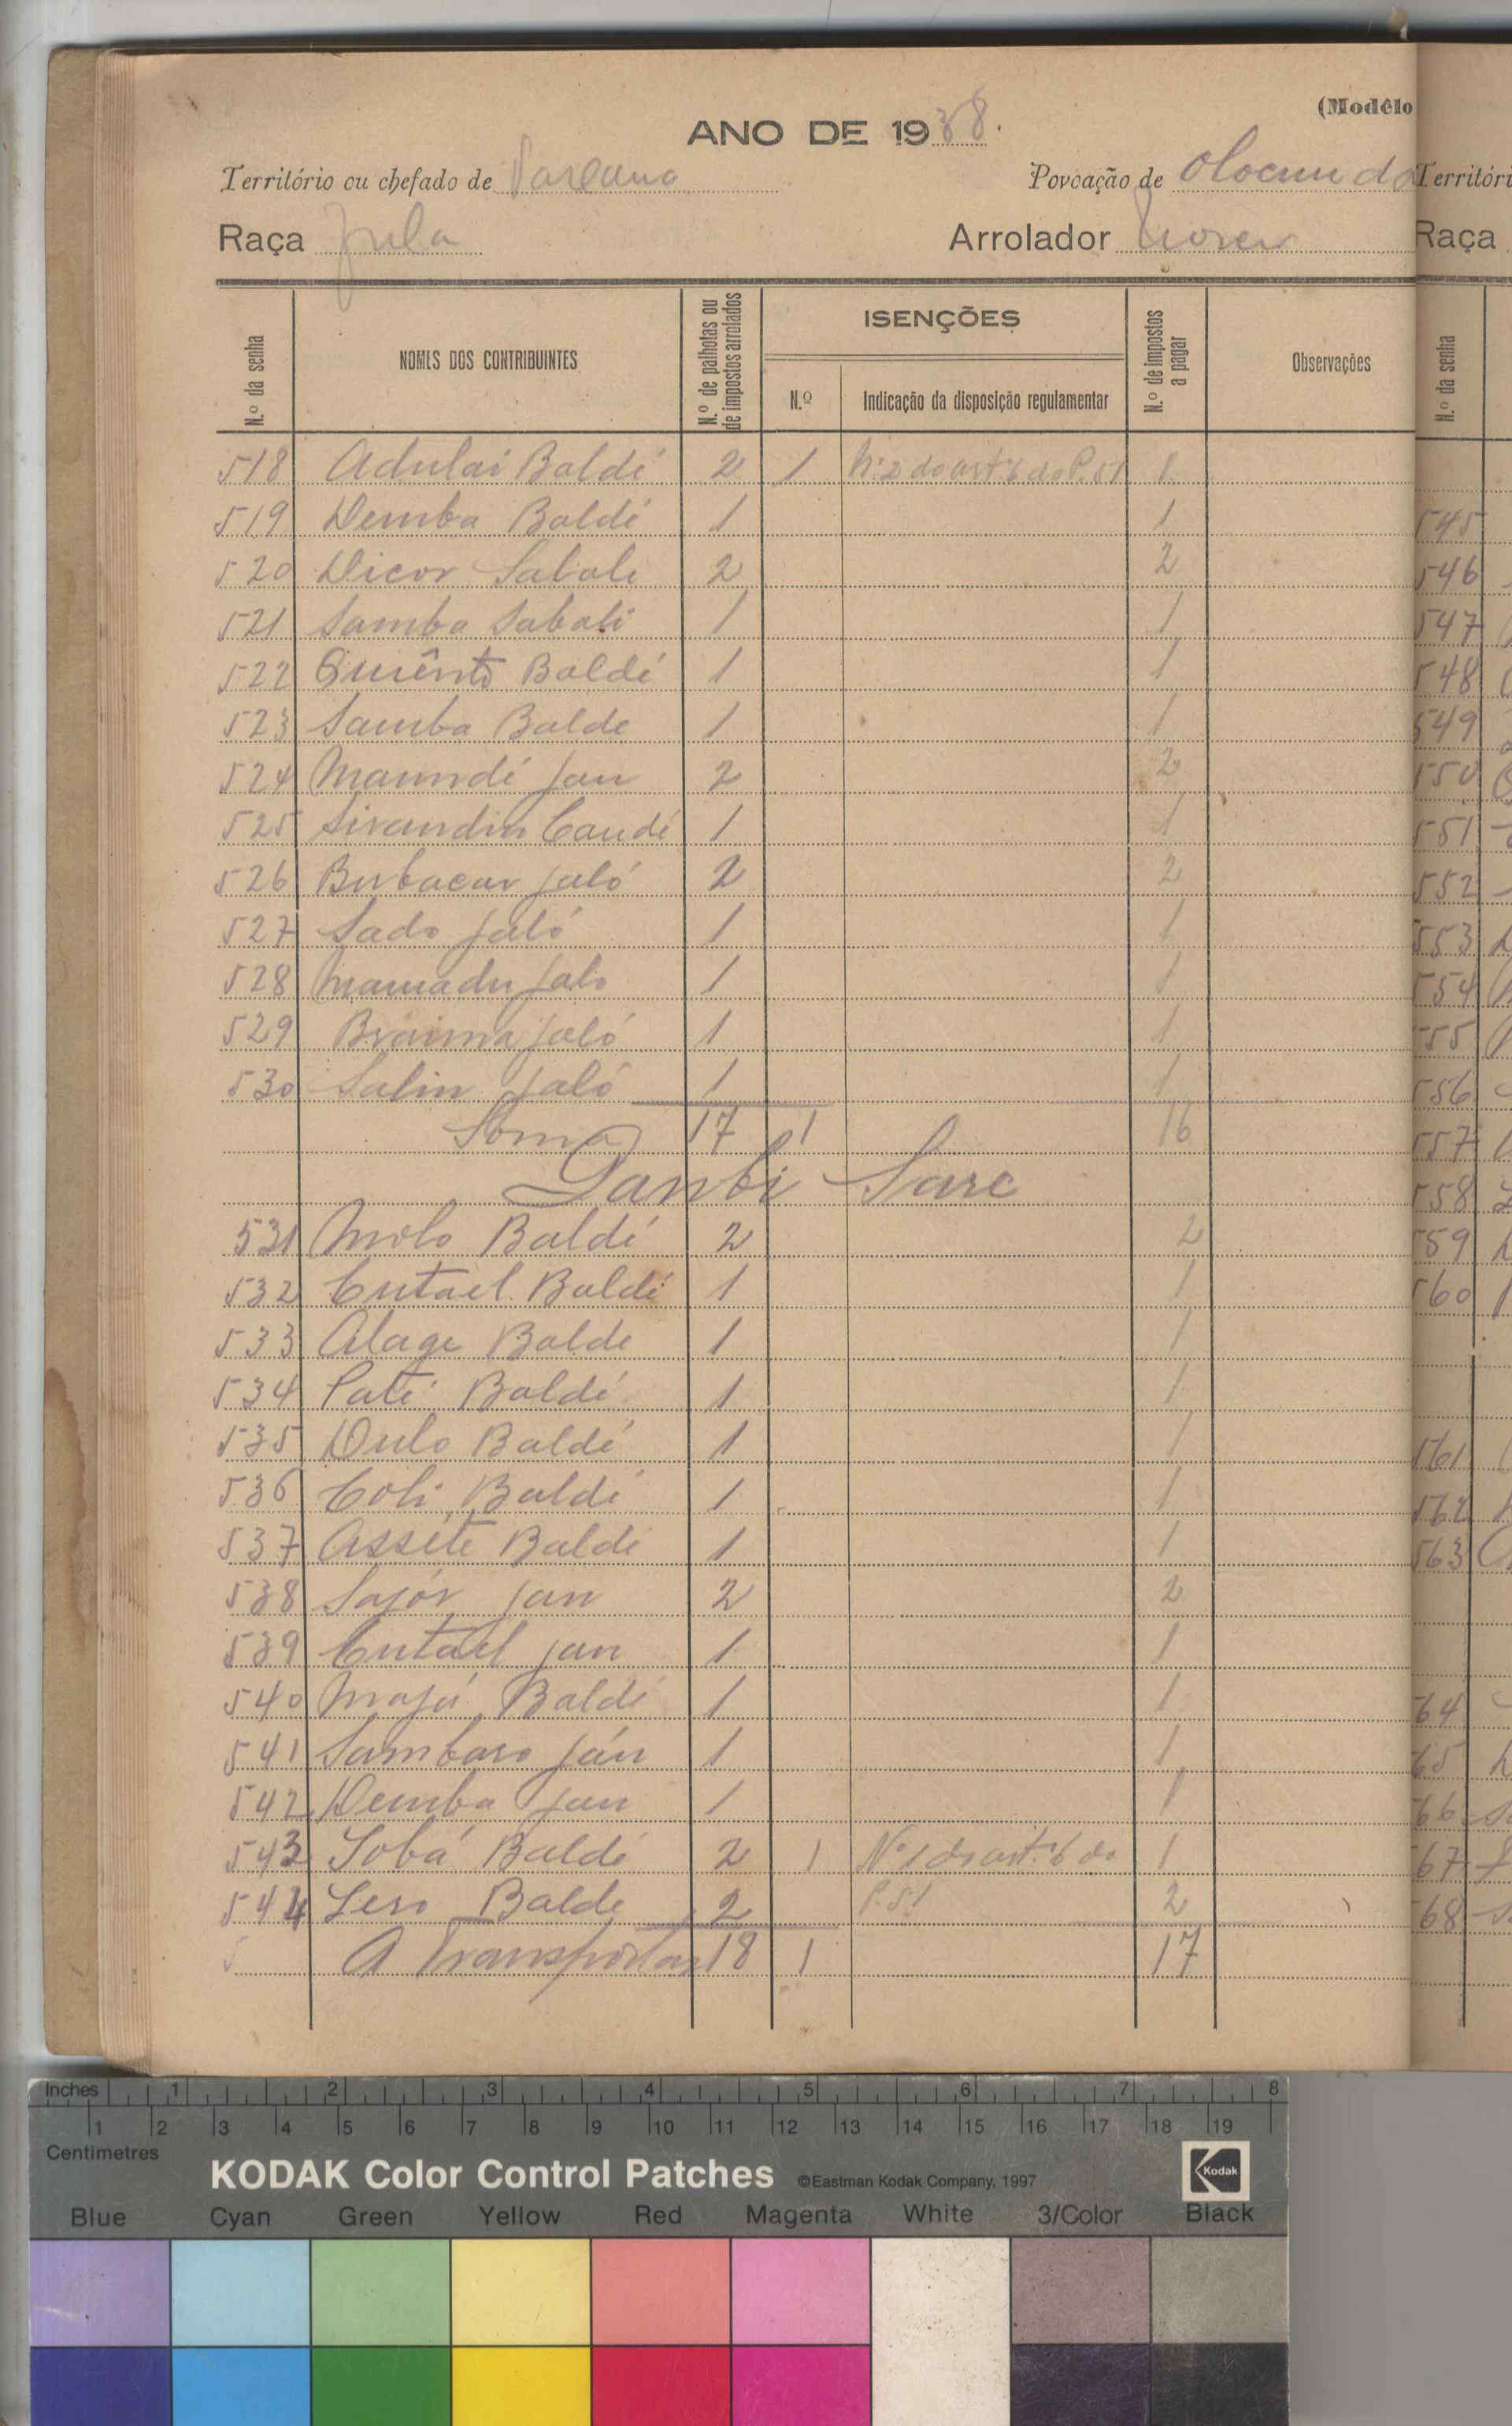 (Modêlo
ANO DE 1938.
Território ou chefado de
Povoação de
Raça Fula
Arrolador
N.º da senha
NOMES DOS CONTRIBUINTES
N.º de palhotas ou de impostos arrolados
ISENÇÕES
N.º
Indicação da disposição regulamentar
N.º de impostos a pagar
Observações
518 Adulai Baldé 2 1 N.º 2 do art.º 6 do P. 51 1
519 Demba Baldé 1 1
520 Dicor Sabali 2 2
521 Samba Sabali 1 1
522 Baldé 1 1
523 Samba Balde 1 1
524 Maundé Jau 2 2
525 Sirandin Candé 1 1
526 Bubacar Jaló 2 2
527 Sado Jaló 1 1
528 Mamadu Jalo 1 1
529 Braima Jaló 1 1
530 Salin Jaló 1 1
Soma 17 1 16
Sare
531 Molo Baldé 2 2
532 Cutael Baldé 1 1
533 Alage Balde 1 1
534 Paté Baldé 1 1
535 Dulo Baldé 1 1
536 Coli Baldé 1 1
537 Assete Balde 1 1
538 Sajór Jau 2 2
539 Cutael Jau 1 1
540 Majá Balde 1 1
541 Sambaro Jáu 1 1
542 Demba Jau 1 1
543 Sobá Baldé 2 1 N.º 1 do art.º 6 do 1
544 Balde 2 P. 51 2
A Transportar 18 1 17
Territóri
Raça
N.º da senha
545
546
547
548
549
550
551
552
553
554
555
556
557
558
559
560
561
562
563
64
65
66
67
68
Inches 1 2 3 4 5 6 7 8
1 2 3 4 5 6 7 8 9 10 11 12 13 14 15 16 17 18 19
Centimetres
KODAK Color Control Patches ©Eastman Kodak Company, 1997 Kodak
Blue Cyan Green Yellow Red Magenta White 3/Color Black